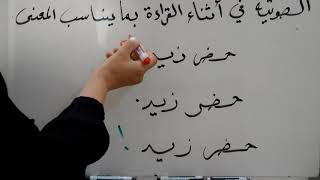 الصوتية في أثناء القراءة بما يناسب المعنى
حضر زيد
حضر زيد .
حضر زيد !